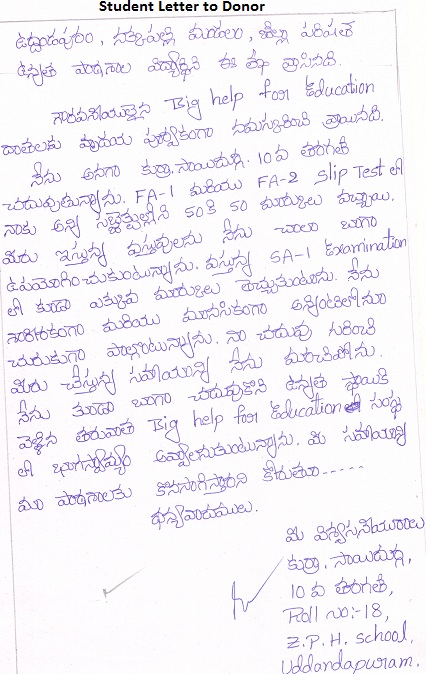 Student Letter to Donor
ఉద్దండపురం, నక్కపల్లి మండలం, జిల్లా పరిషత్
ఉన్నత పాఠశాల విద్యార్థిని ఈ లేఖ వ్రాసినది.
గౌరవనీయులైన Big help for Education
దాతలకు హృదయ పూర్వకంగా నమస్కరించి వ్రాయునది.
నేను అనగా కుర్రా.సాయిదుర్గ. 10వ తరగతి
చదువుతున్నాను. FA-1 మరియు FA-2 Slip Test లో
నాకు అన్ని సబ్జెక్టుల్లోని 50కి 50 మార్కులు వచ్చాయి.
మీరు ఇస్తున్న వస్తువులను నేను చాలా బాగా
ఉపయోగించుకుంటున్నాను. వస్తున్న SA-1 Examination
లో కూడా ఎక్కువ మార్కులు తెచ్చుకుంటాను. నేను
శారీరకంగా మరియు మానసికంగా అన్నింటిలోనూ
చురుకుగా పాల్గొంటున్నాను. నా చదువు గురించి
మీరు చేస్తున్న సహాయాన్ని నేను మరిచిపోను.
నేను కూడా బాగా చదువుకొని ఉన్నత స్థాయికి
వెళ్ళిన తరువాత Big help for Education సంస్థ
లో భాగస్వామ్యం అవ్వాలనుకుంటున్నాను. మీ సహాయాన్ని
మా పాఠశాలకు కొనసాగిస్తారని కోరుతూ-----
ధన్యవాదములు.
మీ విశ్వసనీయురాలు
కుర్రా. సాయిదుర్గ,
10 వ తరగతి,
Roll no:-18,
Z.P.H. School,
Uddandapuram.